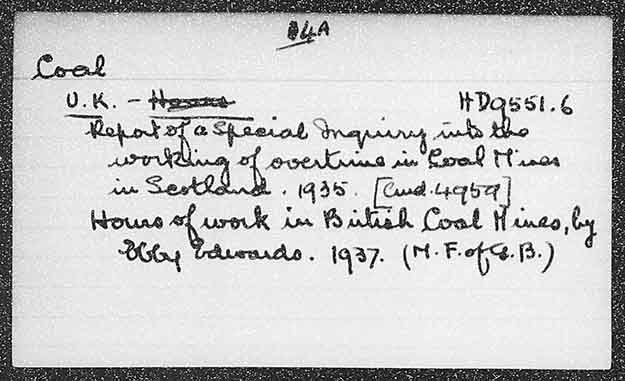 14A
Coal
U.K. - Hours HD9551.6
Report of a Special Inquiry into the
working of overtime in Coal Mines
in Scotland. 1935. [Cmd. 4959]
Hours of work in British Coal Mines, by
Ebby Edwards. 1937. (M.F. of G.B.)